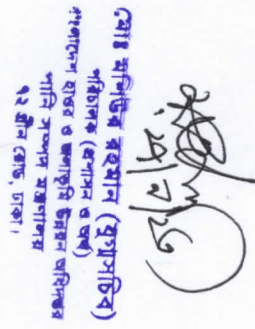 (মোঃ খালিদুর রহমান) (যুগ্মসচিব)
পরিচালক (প্রশাসন ও অর্থ)
বাংলাদেশ হাওর ও জলাভূমি উন্নয়ন অধিদপ্তর
পানি সম্পদ মন্ত্রণালয়
৭২ গ্রীন রোড, ঢাকা।